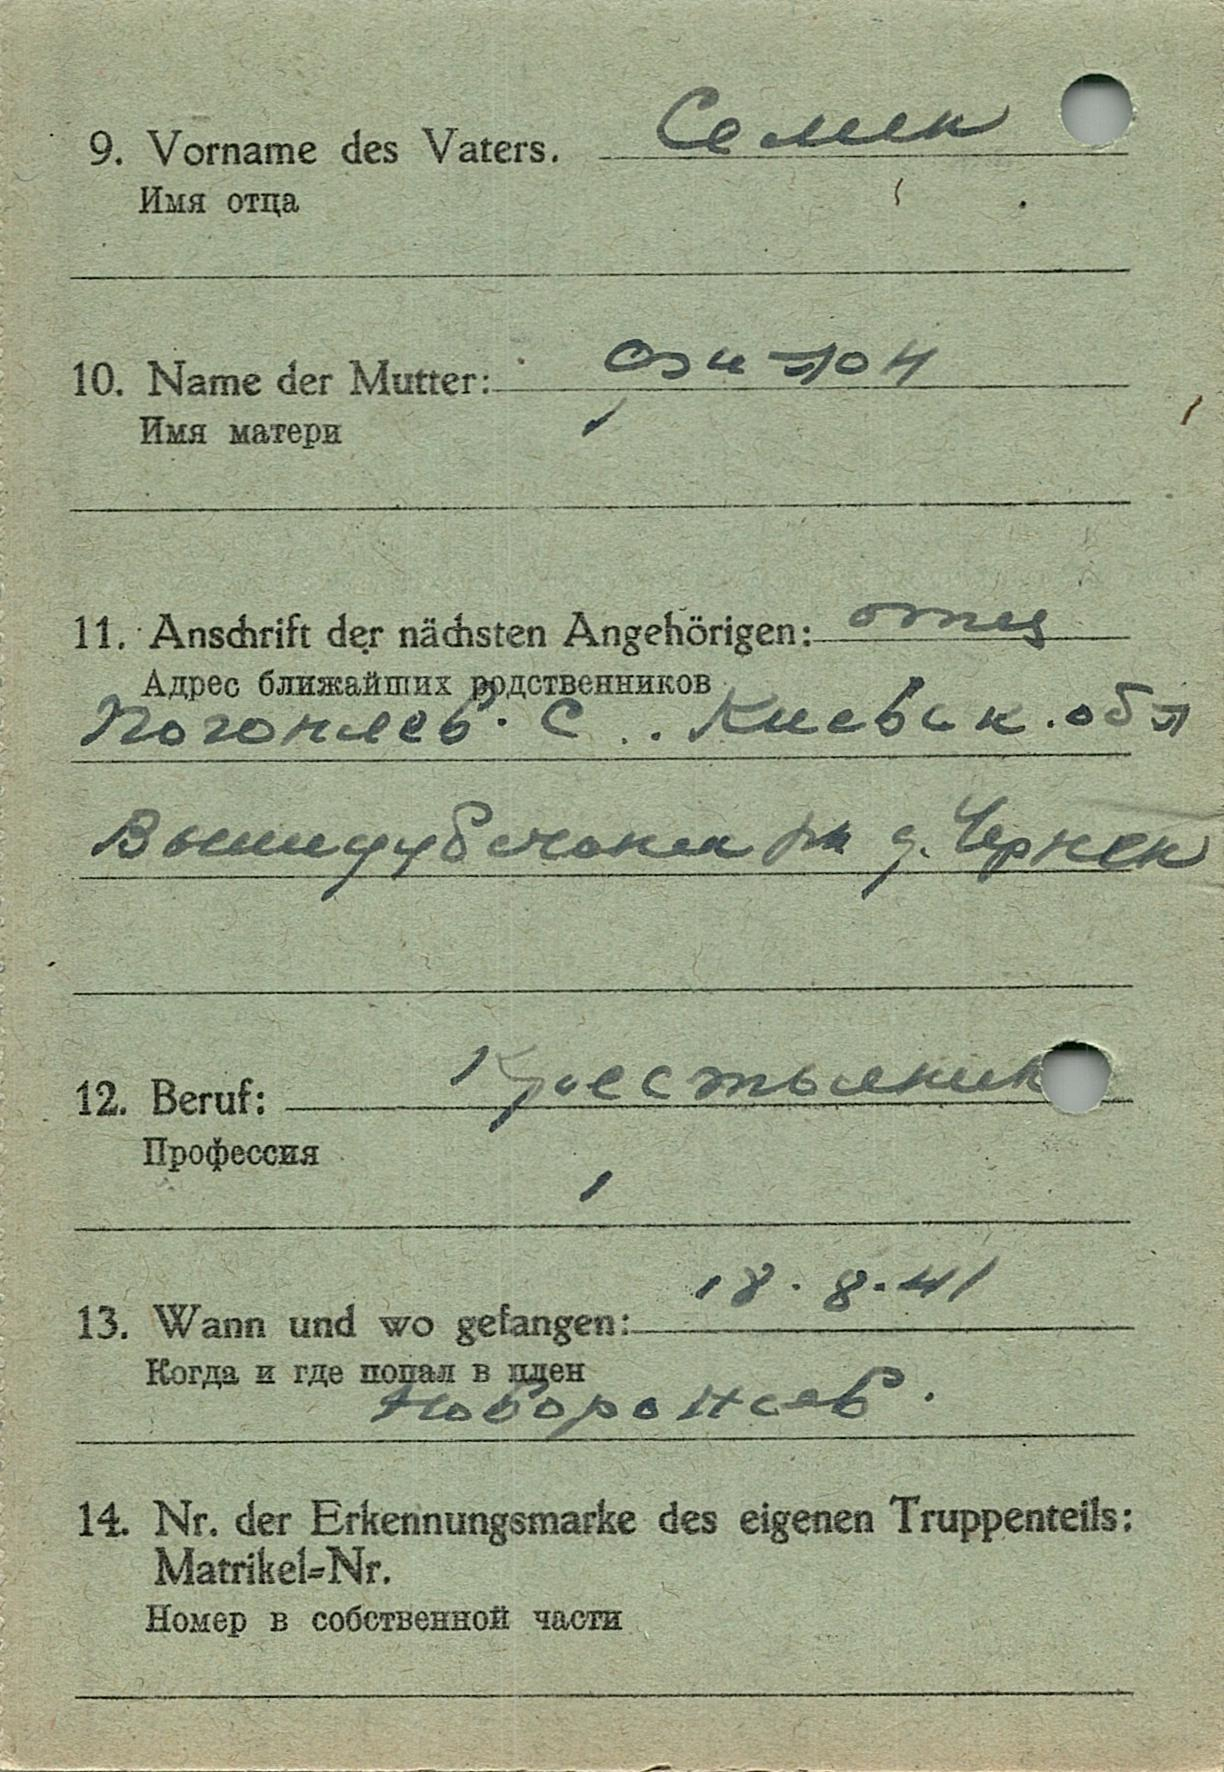 9. Vorname des Vaters. Семен
Имя отца
10. Name der Mutter:
Имя матери
11. Anschrift der nächsten Angehörigen: отец
Адрес ближайших родственников
С.. Киевск. обл
р-н д. Чернен
12. Beruf: Крестьянин
Профессия
18.8.41
13. Wann und wo gefangen:
Когда и где попал в плен
Новоронжев.
14. Nr. der Erkennungsmarke des eigenen Truppenteils:
Matrikel-Nr.
Номер в собственной части